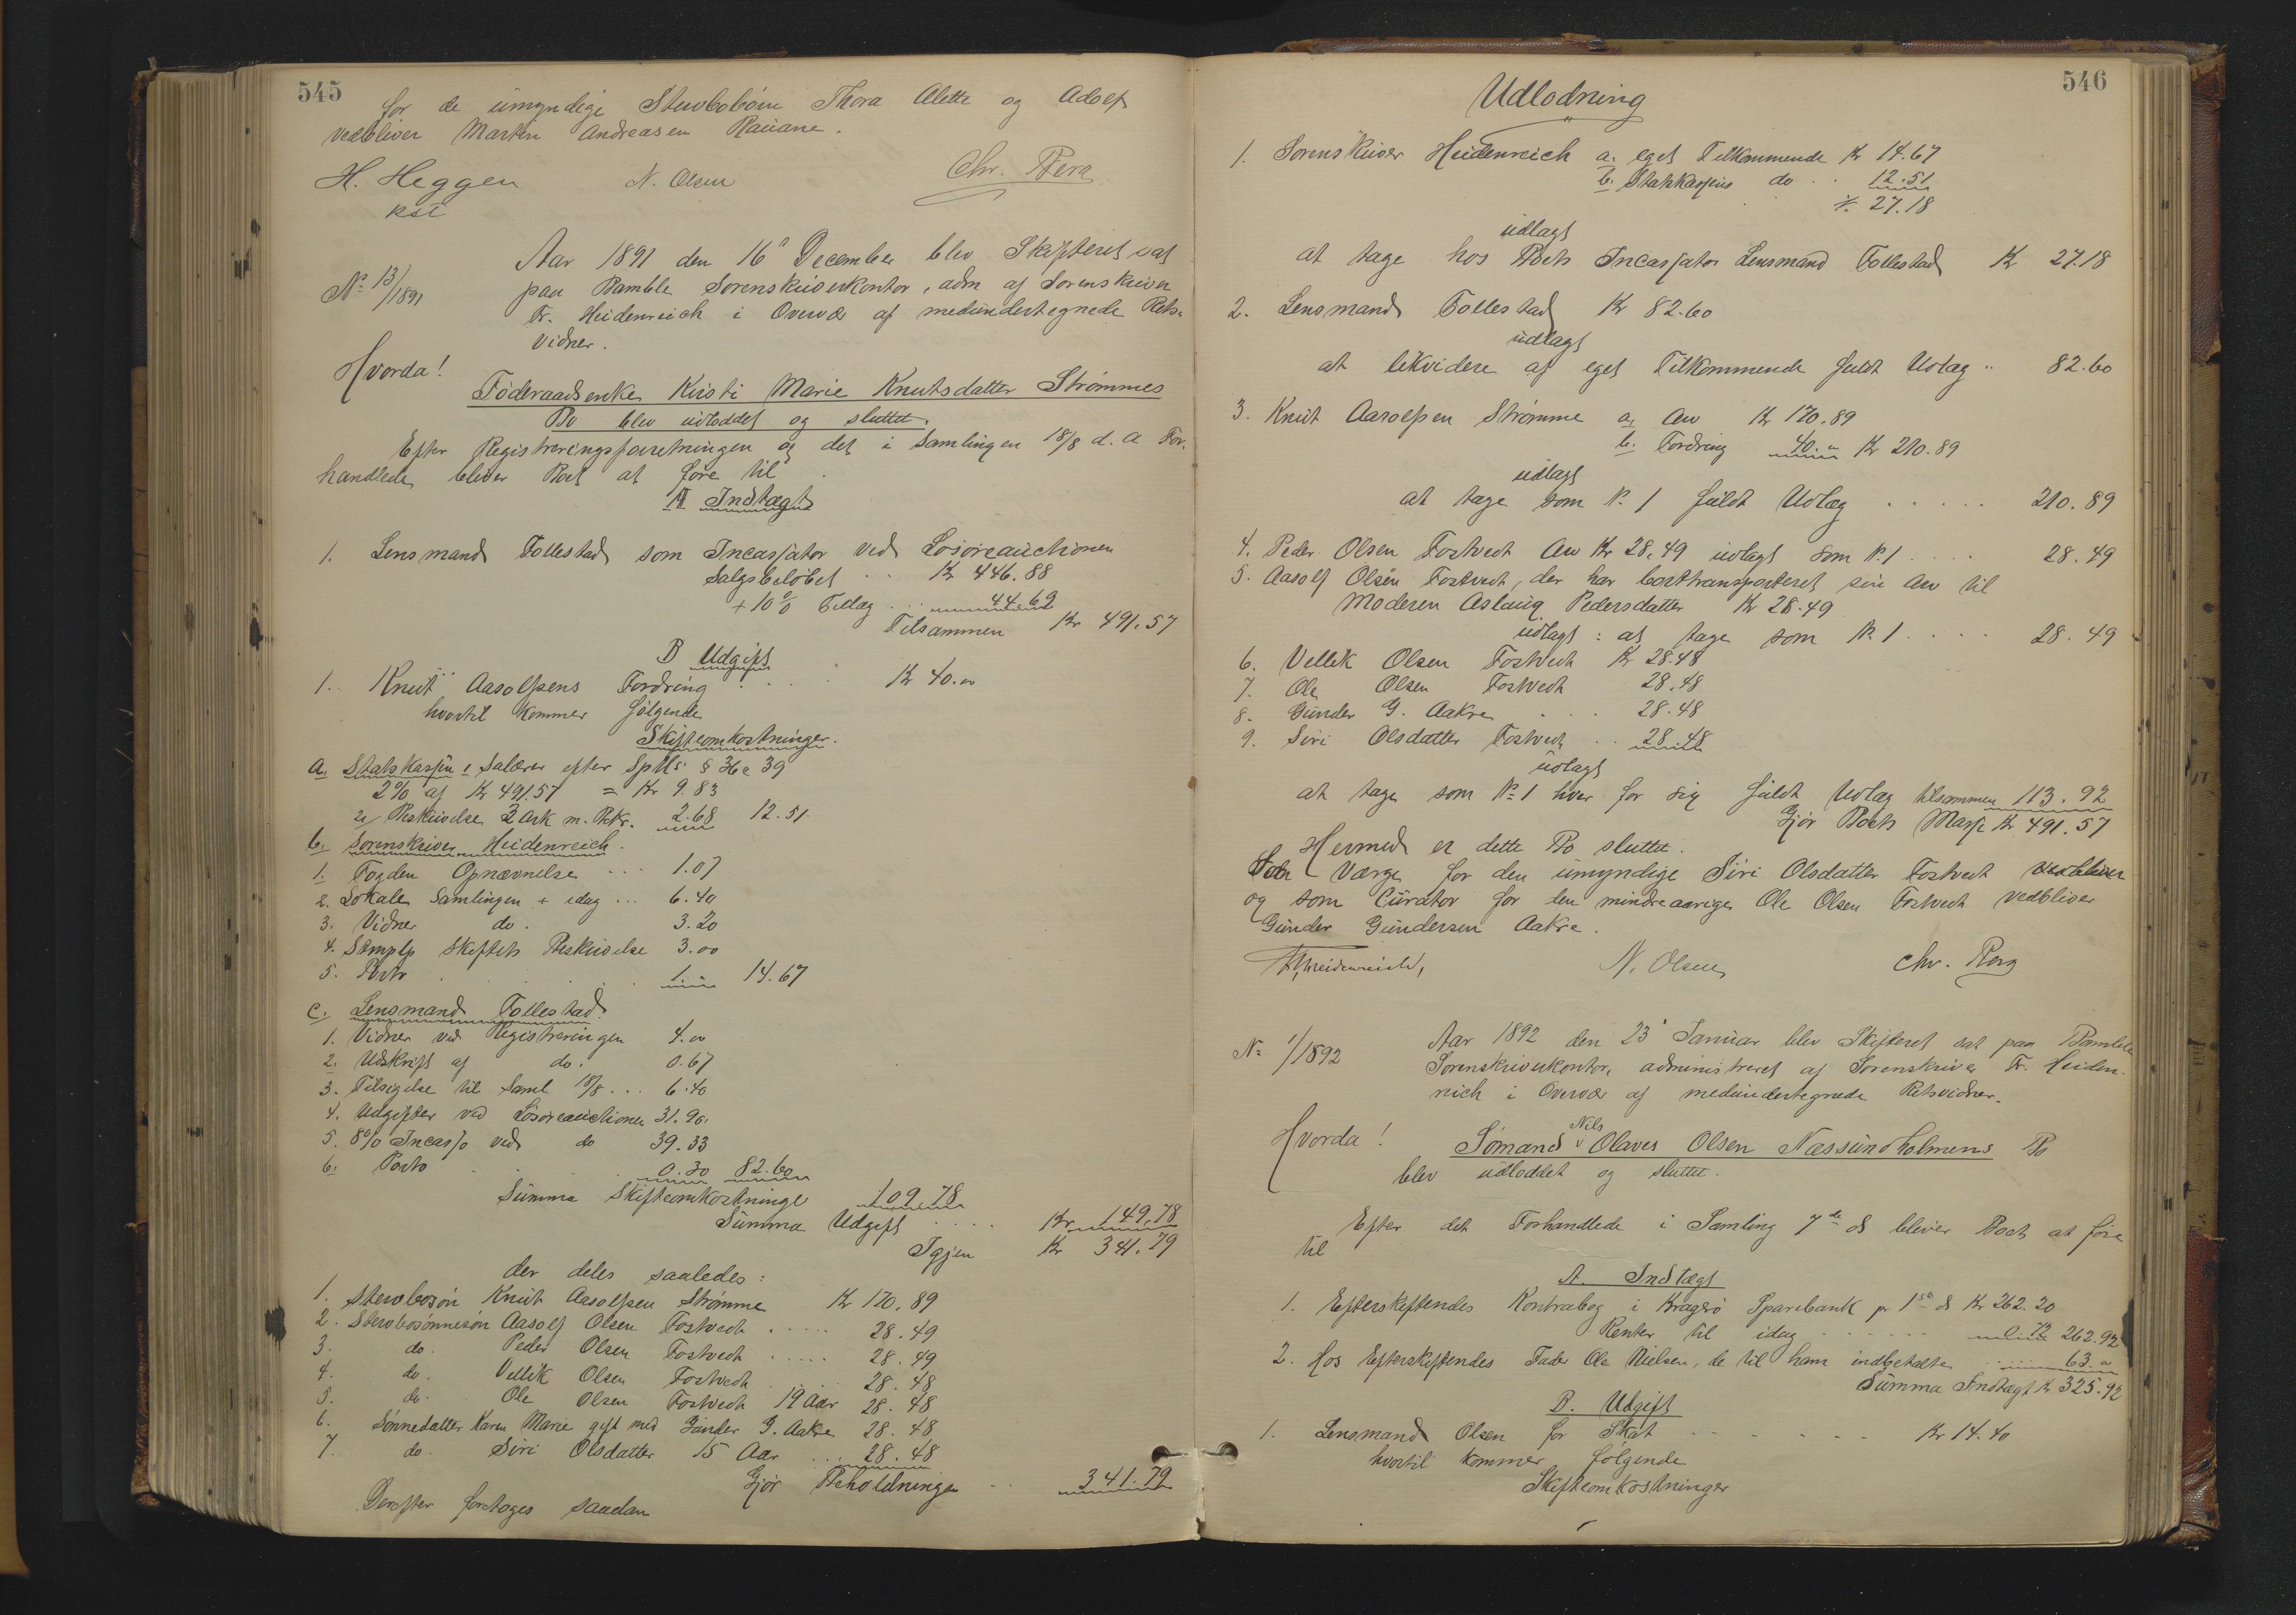 545
for de umyndige Stervbobørn Thora Alette og Adolf
vedbliver Martin Andreasen Rauane.
H. Heggen N. Olsen Chr. Berg
kst
No 13/1891
Aar 1891 den 16' December blev Skifteret sat
paa Bamble Sorenskriverkontor, adm af Sorenskriver
Fr. Heidenreich i Overvær af medundertegnede Rets-
vidner.
Hvorda!
Føderaadsenke Kirsti Marie Knutsdatter Strømmes
Bo blev udloddet og sluttet.
Efter Registreringsforretningen og det i Samlingen 18/8 d. A For-
handlede bliver Boet at føre til
A Indtægt
1. Lensmand Follestad som Incassator ved Løsøreauctionen
Salgsbeløbet .. Kr 446.88
+ 10% Tillæg ... 44.69
Tilsammen Kr 491.57
B Udgift
1. Knut Aasolfsens Fordring .... Kr 40.00
hvortil kommer følgende
Skifteomkostninger.
a. Statskassen: Salærer efter Sptls § 36 c 39
2% af Kr 491.57 = Kr 9.83
Beskrivelse 2 Ark m. Rkr. 2.68 12.51
b. Sorenskriver Heidenreich.
1. Fogden Opnævnelse ... 1.07
2. Lokale Samlingen + idag ... 6.40
3. Vidner do. 3.20
4. Stmplp Skiftets Beskrivelse 3.00
5. Porto 1.- 14.67
c. Lensmand Follestad.
1. Vidner ved Registreringen 4.00
2. Udskrift af do. 0.67
3. Tilsigelse til Saml 18/8 ... 6.40
4. Udgifter ved Løsøreauctionen 31.90
5. 8% Incasso ved do 39.33
6. Porto 0.30 82.60
Summa Skifteomkostninge 109.78
Summa Udgift .... Kr 149.78
Igjen Kr 341.79
der deles saaledes:
1. Stervbosøn Knut Aasolfsen Strømme Kr 170.89
2. Stervbosønnesøn Aasolf Olsen Fostvedt ..... 28.49
3. do. Peder Olsen Fostvedt ..... 28.49
4. do. Vellik Olsen Fostvedt 28.48
5. do. Ole Olsen Fostvedt 19 Aar 28.48
6. Sønnedatter Karen Marie gift med Gunder G. Aakre 28.48
7. do. Siri Olsdatter 15 Aar ... 28.48
Gjør Beholdningen .. 341.79
Derefter foretoges saadan
546
Udlodning
1. Sorenskriver Heidenreich a. eget Tilkommende Kr 14.67
b. Statskassens do .. 12.51
27.18
udlagt
at tage hos Boets Incassator Lensmand Follestad Kr 27.18
2. Lensmand Follestad Kr 82.60
udlagt
at likvidere af eget Tilkommende fuldt Udlæg .. 82.60
3. Knut Aasolfsen Strømme a, Arv Kr 170.89
b. Fordring 40.- Kr 210.89
udlagt
at tage som No. 1 fuldt Udlæg ..... 210.89
4. Peder Olsen Fostvedt Arv Kr 28.49 udlagt som No. 1 .... 28.49
5. Aasolf Olsen Fostvedt, der har borttransporteret sin Arv til
Moderen Aslaug Pedersdatter Kr 28.49
udlagt: at tage som No. 1 .... 28.49
6. Vellik Olsen Fostvedt Kr 28.48
7. Ole Olsen Fostvedt 28.48
8. Gunder G. Aakre ... 28.48
9. Siri Olsdatter Fostvedt .. 28.48
udlagt
at tage som No 1 hver for sig fuldt Udlæg tilsammen 113.92
Gjør Boets Masse Kr. 491.57
Hermed er dette Bo sluttet.
Som Værge for den umyndige Siri Olsdatter Fostvedt vedbliver
og som Curator for den mindreaarige Ole Olsen Fostvedt vedbliver
Gunder Gundersen Aakre.
Fr. Heidenreich, N. Olsen Chr. Berg
No 1/1892
Aar 1892 den 23' Januar blev Skifteret sat paa Bamble
Sorenskriverkontor, administreret af Sorenskriver Fr. Heiden-
reich i Overvær af medundertegnede Retsvidner.
Hvorda!
Sømand Nils Olaves Olsen Næssundholmens Bo
blev udloddet og sluttet.
Efter det Forhandlede i Samling 7de ds bliver Boet at føre
til
A. Indtægt
1. Efterskiftendes Kontrabog i Kragerø Sparebank pr 1ste ds Kr 262.20
Renter til idag ...... 0.72 262.92
2. Hos Efterskiftendes Fader Ole Nielsen, de til ham indbetalte ..... 63.-
Summa Indtægt Kr 325.92
B. Udgift
1. Lensmand Olsen for Skat ....... Kr 14.40
hvortil kommer følgende
Skifteomkostninger